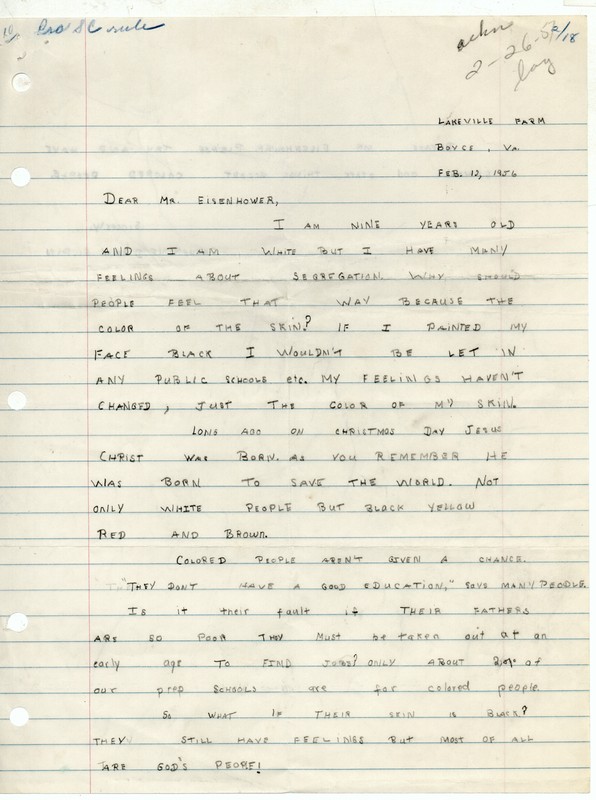 ackn
2-26-56
Lakeville Farm
Boyce, Va.
Feb. 12, 1956
Dear Mr. Eisenhower,
I am nine years old
and I am white but I have many
feelings about segregation. Why should
people feel that way because the
color of the skin? If I painted my
face black I wouldn't be let in
any public schools etc. My feelings haven't
changed, just the color of my skin.
Long ago on christmos day Jesus
Christ was born. As you remember he
was born to save the world. Not
only white people but black yellow
red and brown.
Colored people aren't given a chance.
"They dont have a good education," says many people.
Is it their fault if their fathers
are so poor they must be taken out at an
early age to find jobs? Only about
our prep schools are for colored people.
So what if their skin is black?
They still have feelings but most of all
are God's people!